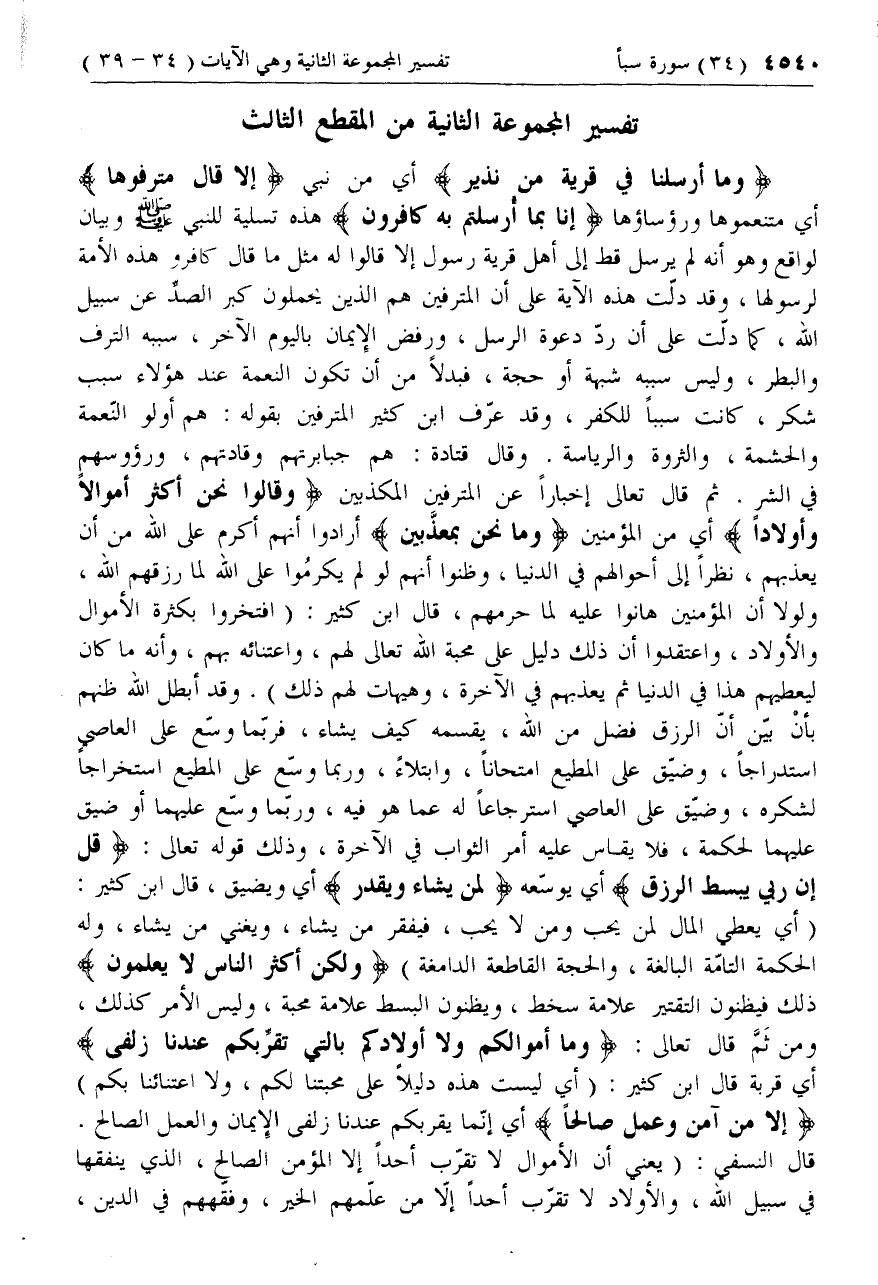 ٤٥٤٠ (٣٤) سورة سبأ تفسير المجموعة الثانية وهي الآيات ( ٣٤ – ٣٩ )
تفسير المجموعة الثانية من المقطع الثالث
﴿ وما أرسلنا في قرية من نذير ﴾ أي من نبي ﴿ إلا قال مترفوها ﴾
أي متنعموها ورؤساؤها ﴿ إنا بما أُرسلتم به كافرون ﴾ هذه تسلية للنبي ﷺ وبيان
لواقع وهو أنه لم يرسل قط إلى أهل قرية رسول إلا قالوا له مثل ما قال كافرو هذه الأمة
لرسولها ، وقد دلّت هذه الآية على أن المترفين هم الذين يحملون كبر الصدِّ عن سبيل
الله ، كما دلّت على أن ردّ دعوة الرسل ، ورفض الإيمان باليوم الآخر ، سببه الترف
والبطر ، وليس سببه شبهة أو حجة ، فبدلاً من أن تكون النعمة عند هؤلاء سبب
شكر ، كانت سبباً للكفر ، وقد عرّف ابن كثير المترفين بقوله : هم أولو النّعمة
والحشمة ، والثروة والرياسة . وقال قتادة : هم جبابرتهم وقادتهم ، ورؤوسهم
في الشر . ثم قال تعالى إخباراً عن المترفين المكذبين ﴿ وقالوا نحن أكثر أموالاً
وأولاداً ﴾ أي من المؤمنين ﴿ وما نحن بمعذَّبين ﴾ أرادوا أنهم أكرم على الله من أن
يعذبهم ، نظراً إلى أحوالهم في الدنيا ، وظنوا أنهم لو لم يكرمُوا على الله لما رزقهم الله ،
ولولا أن المؤمنين هانوا عليه لما حرمهم ، قال ابن كثير : ( افتخروا بكثرة الأموال
والأولاد ، واعتقدوا أن ذلك دليل على محبة الله تعالى لهم ، واعتنائه بهم ، وأنه ما كان
ليعطيهم هذا في الدنيا ثم يعذبهم في الآخرة ، وهيهات لهم ذلك ) . وقد أبطل الله ظنهم
بأنْ بيّن أنّ الرزق فضل من الله ، يقسمه كيف يشاء ، فربّما وسّع على العاصي
استدراجاً ، وضيّق على المطيع امتحاناً ، وابتلاءً ، وربما وسّع على المطيع استخراجاً
لشكره ، وضيّق على العاصي استرجاعاً له عما هو فيه ، وربّما وسّع عليهما أو ضيق
عليهما لحكمة ، فلا يقاس عليه أمر الثواب في الآخرة ، وذلك قوله تعالى : ﴿ قل
إن ربي يبسط الرزق ﴾ أي يوسّعه ﴿ لمن يشاء ويقدر ﴾ أي ويضيق ، قال ابن كثير :
( أي يعطي المال لمن يحب ومن لا يحب ، فيفقر من يشاء ، ويغني من يشاء ، وله
الحكمة التامّة البالغة ، والحجة القاطعة الدامغة ) ﴿ ولكن أكثر الناس لا يعلمون ﴾
ذلك فيظنون التقتير علامة سخط ، ويظنون البسط علامة محبة ، وليس الأمر كذلك ،
ومن ثَمَّ قال تعالى : ﴿ وما أموالكم ولا أولادكم بالتي تقرِّبكم عندنا زلفى ﴾
أي قربة قال ابن كثير : ( أي ليست هذه دليلاً على محبتنا لكم ، ولا اعتنائنا بكم )
﴿ إلا من آمن وعمل صالحاً ﴾ أي إنّما يقربكم عندنا زلفى الإيمان والعمل الصالح .
قال النسفي : ( يعني أن الأموال لا تقرّب أحداً إلا المؤمن الصالح ، الذي ينفقها
في سبيل الله ، والأولاد لا تقرّب أحداً إلّا من علّمهم الخير ، وفقّههم في الدين ،